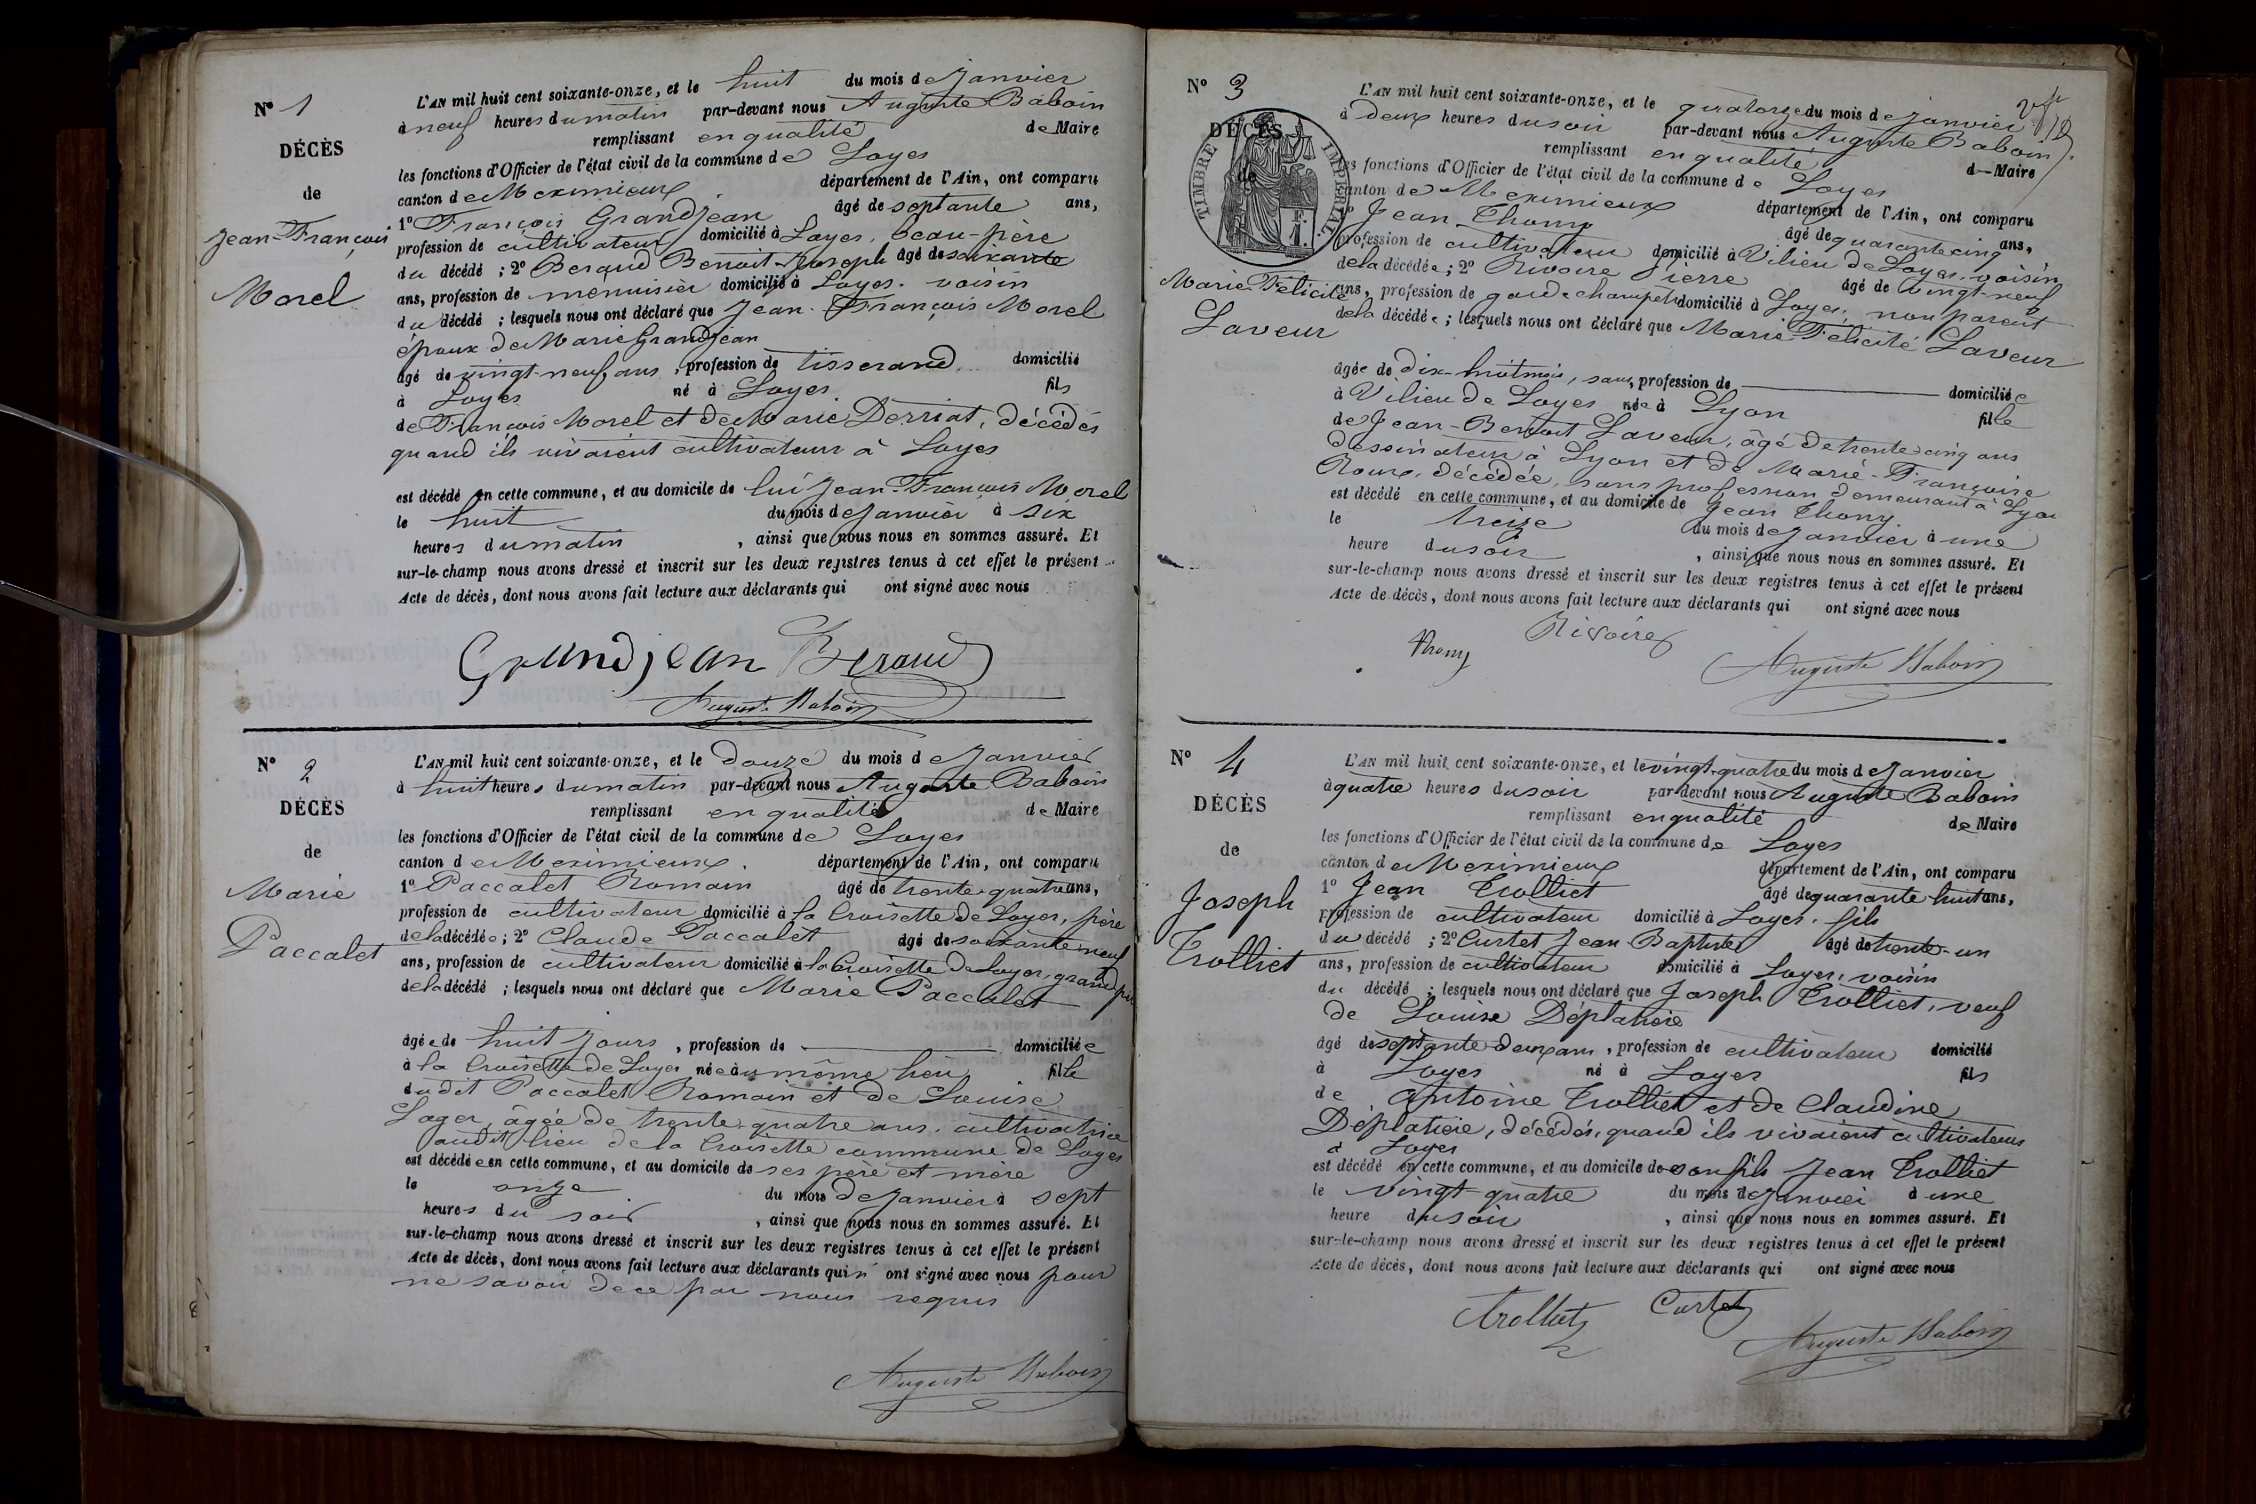 N° 1
DÉCÈS
de
Jean-François
Morel
L'AN mil huit cent soixante-onze, et le huit du mois de Janvier
à neuf heures du matin par-devant nous Auguste Baboin
remplissant en qualité de Maire
les fonctions d'Officier de l'état civil de la commune de Loyes
canton de Meximieux département de l'Ain, ont comparu
1° François Grandjean âgé de septante ans,
profession de cultivateur domicilié à Loyes, beau-père
du décédé ; 2° Beraud Benoit-Joseph âgé de soixante
ans, profession de menuisier domicilié à Loyes, voisin
du décédé ; lesquels nous ont déclaré que Jean-François Morel
époux de Marie Grandjean
âgé de vingt-neuf ans, profession de tisserand domicilié
à Loyes né à Loyes fils
de François Morel et de Marie Derriat, décédés
quand ils vivaient cultivateurs à Loyes
est décédé en cette commune, et au domicile de lui Jean-François Morel
le huit du mois de Janvier à six
heures du matin, ainsi que nous nous en sommes assuré. Et
sur-le-champ nous avons dressé et inscrit sur les deux registres tenus à cet effet le présent
Acte de décès, dont nous avons fait lecture aux déclarants qui ont signé avec nous
Grandjean Beraud
Auguste Baboin
N° 2
DÉCÈS
de
Marie
Paccalet
L'AN mil huit cent soixante-onze, et le douze du mois de Janvier
à huit heures du matin par-devant nous Auguste Baboin
remplissant en qualité de Maire
les fonctions d'Officier de l'état civil de la commune de Loyes
canton de Meximieux département de l'Ain, ont comparu
1° Paccalet Romain âgé de trente-quatre ans,
profession de cultivateur domicilié à la Croisette de Loyes, père
de la décédée ; 2° Claude Paccalet âgé de soixante neuf
ans, profession de cultivateur domicilié à la Croisette de Loyes, grand père
de la décédé ; lesquels nous ont déclaré que Marie Paccalet
âgée de huit jours, profession de domiciliée
à la Croisette de Loyes née au même lieu fille
dudit Paccalet Romain et de Louise
Loger, âgée de trente-quatre ans, cultivatrice
audit lieu de la Croisette commune de Loyes
est décédée en cette commune, et au domicile de ses père et mère
le onze du mois de Janvier à sept
heures du soir, ainsi que nous nous en sommes assuré. Et
sur-le-champ nous avons dressé et inscrit sur les deux registres tenus à cet effet le présent
Acte de décès, dont nous avons fait lecture aux déclarants qui n'ont signé avec nous pour
ne savoir de ce par nous requis
Auguste Baboin
N° 3
DÉCÈS
de
TIMBRE IMPÉRIAL
1 F.
Marie Félicité
Laveur
L'AN mil huit cent soixante-onze, et le quatorze du mois de Janvier
à deux heures du soir par-devant nous Auguste Baboin
remplissant en qualité de Maire
les fonctions d'Officier de l'état civil de la commune de Loyes
canton de Meximieux département de l'Ain, ont comparu
1° Jean Thomy âgé de quarante cinq ans,
profession de cultivateur domicilié à Vilieu de Loyes, voisin
de la décédée ; 2° Rivoire Pierre âgé de vingt-neuf
ans, profession de garde champêtre domicilié à Loyes, non parent
de la décédée ; lesquels nous ont déclaré que Marie Félicité Laveur
âgée de dix-huit mois, sans profession de domiciliée
à Vilieu de Loyes née à Lyon fille
de Jean-Benoit Laveur, âgé de trente cinq ans
dessinateur à Lyon et de Marie-Françoise
Roux, décédée, sans profession demeurant à Lyon
est décédé en cette commune, et au domicile de Jean Thomy
le treize du mois de Janvier à une
heure du soir, ainsi que nous nous en sommes assuré. Et
sur-le-champ nous avons dressé et inscrit sur les deux registres tenus à cet effet le présent
Acte de décès, dont nous avons fait lecture aux déclarants qui ont signé avec nous
Thomy Rivoire
Auguste Baboin
N° 4
DÉCÈS
de
Joseph
Trolliet
L'AN mil huit cent soixante-onze, et le vingt-quatre du mois de Janvier
à quatre heures du soir par-devant nous Auguste Baboin
remplissant en qualité de Maire
les fonctions d'Officier de l'état civil de la commune de Loyes
canton de Meximieux département de l'Ain, ont comparu
1° Jean Trolliet âgé de quarante-huit ans,
profession de cultivateur domicilié à Loyes, fils
du décédé ; 2° Curtet Jean-Baptiste âgé de trente-un
ans, profession de cultivateur domicilié à Loyes, voisin
du décédé ; lesquels nous ont déclaré que Joseph Trolliet, veuf
de Louise Déplatière
âgé de septante deux ans, profession de cultivateur domicilié
à Loyes né à Loyes fils
de Antoine Trolliet et de Claudine
Déplatière, décédés, quand ils vivaient cultivateurs
à Loyes
est décédé en cette commune, et au domicile de son fils Jean Trolliet
le vingt-quatre du mois de Janvier à une
heure du soir, ainsi que nous nous en sommes assuré. Et
sur-le-champ nous avons dressé et inscrit sur les deux registres tenus à cet effet le présent
Acte de décès, dont nous avons fait lecture aux déclarants qui ont signé avec nous
Trolliet Curtet
Auguste Baboin